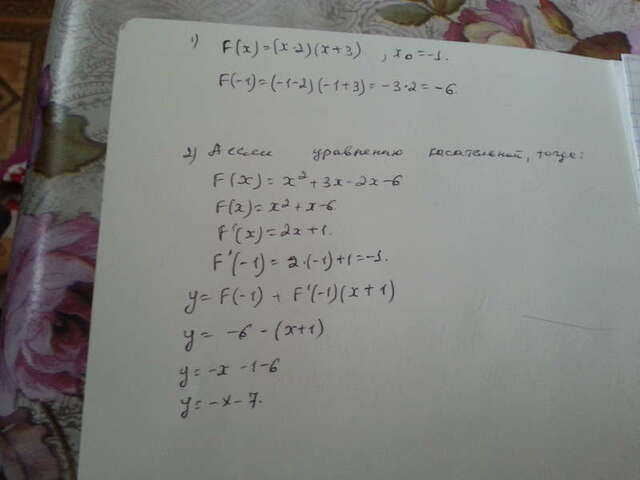 1) F(x)=(x-2)(x+3) , x₀=-1.
F(-1)=(-1-2)(-1+3)=-3·2=-6.
2) А если уравнению касательной, тогда:
F(x)=x²+3x-2x-6
F(x)=x²+x-6
F'(x)=2x+1.
F'(-1)=2·(-1)+1=-1.
y=F(-1)+F'(-1)(x+1)
y= -6-(x+1)
y=-x-1-6
y=-x-7.